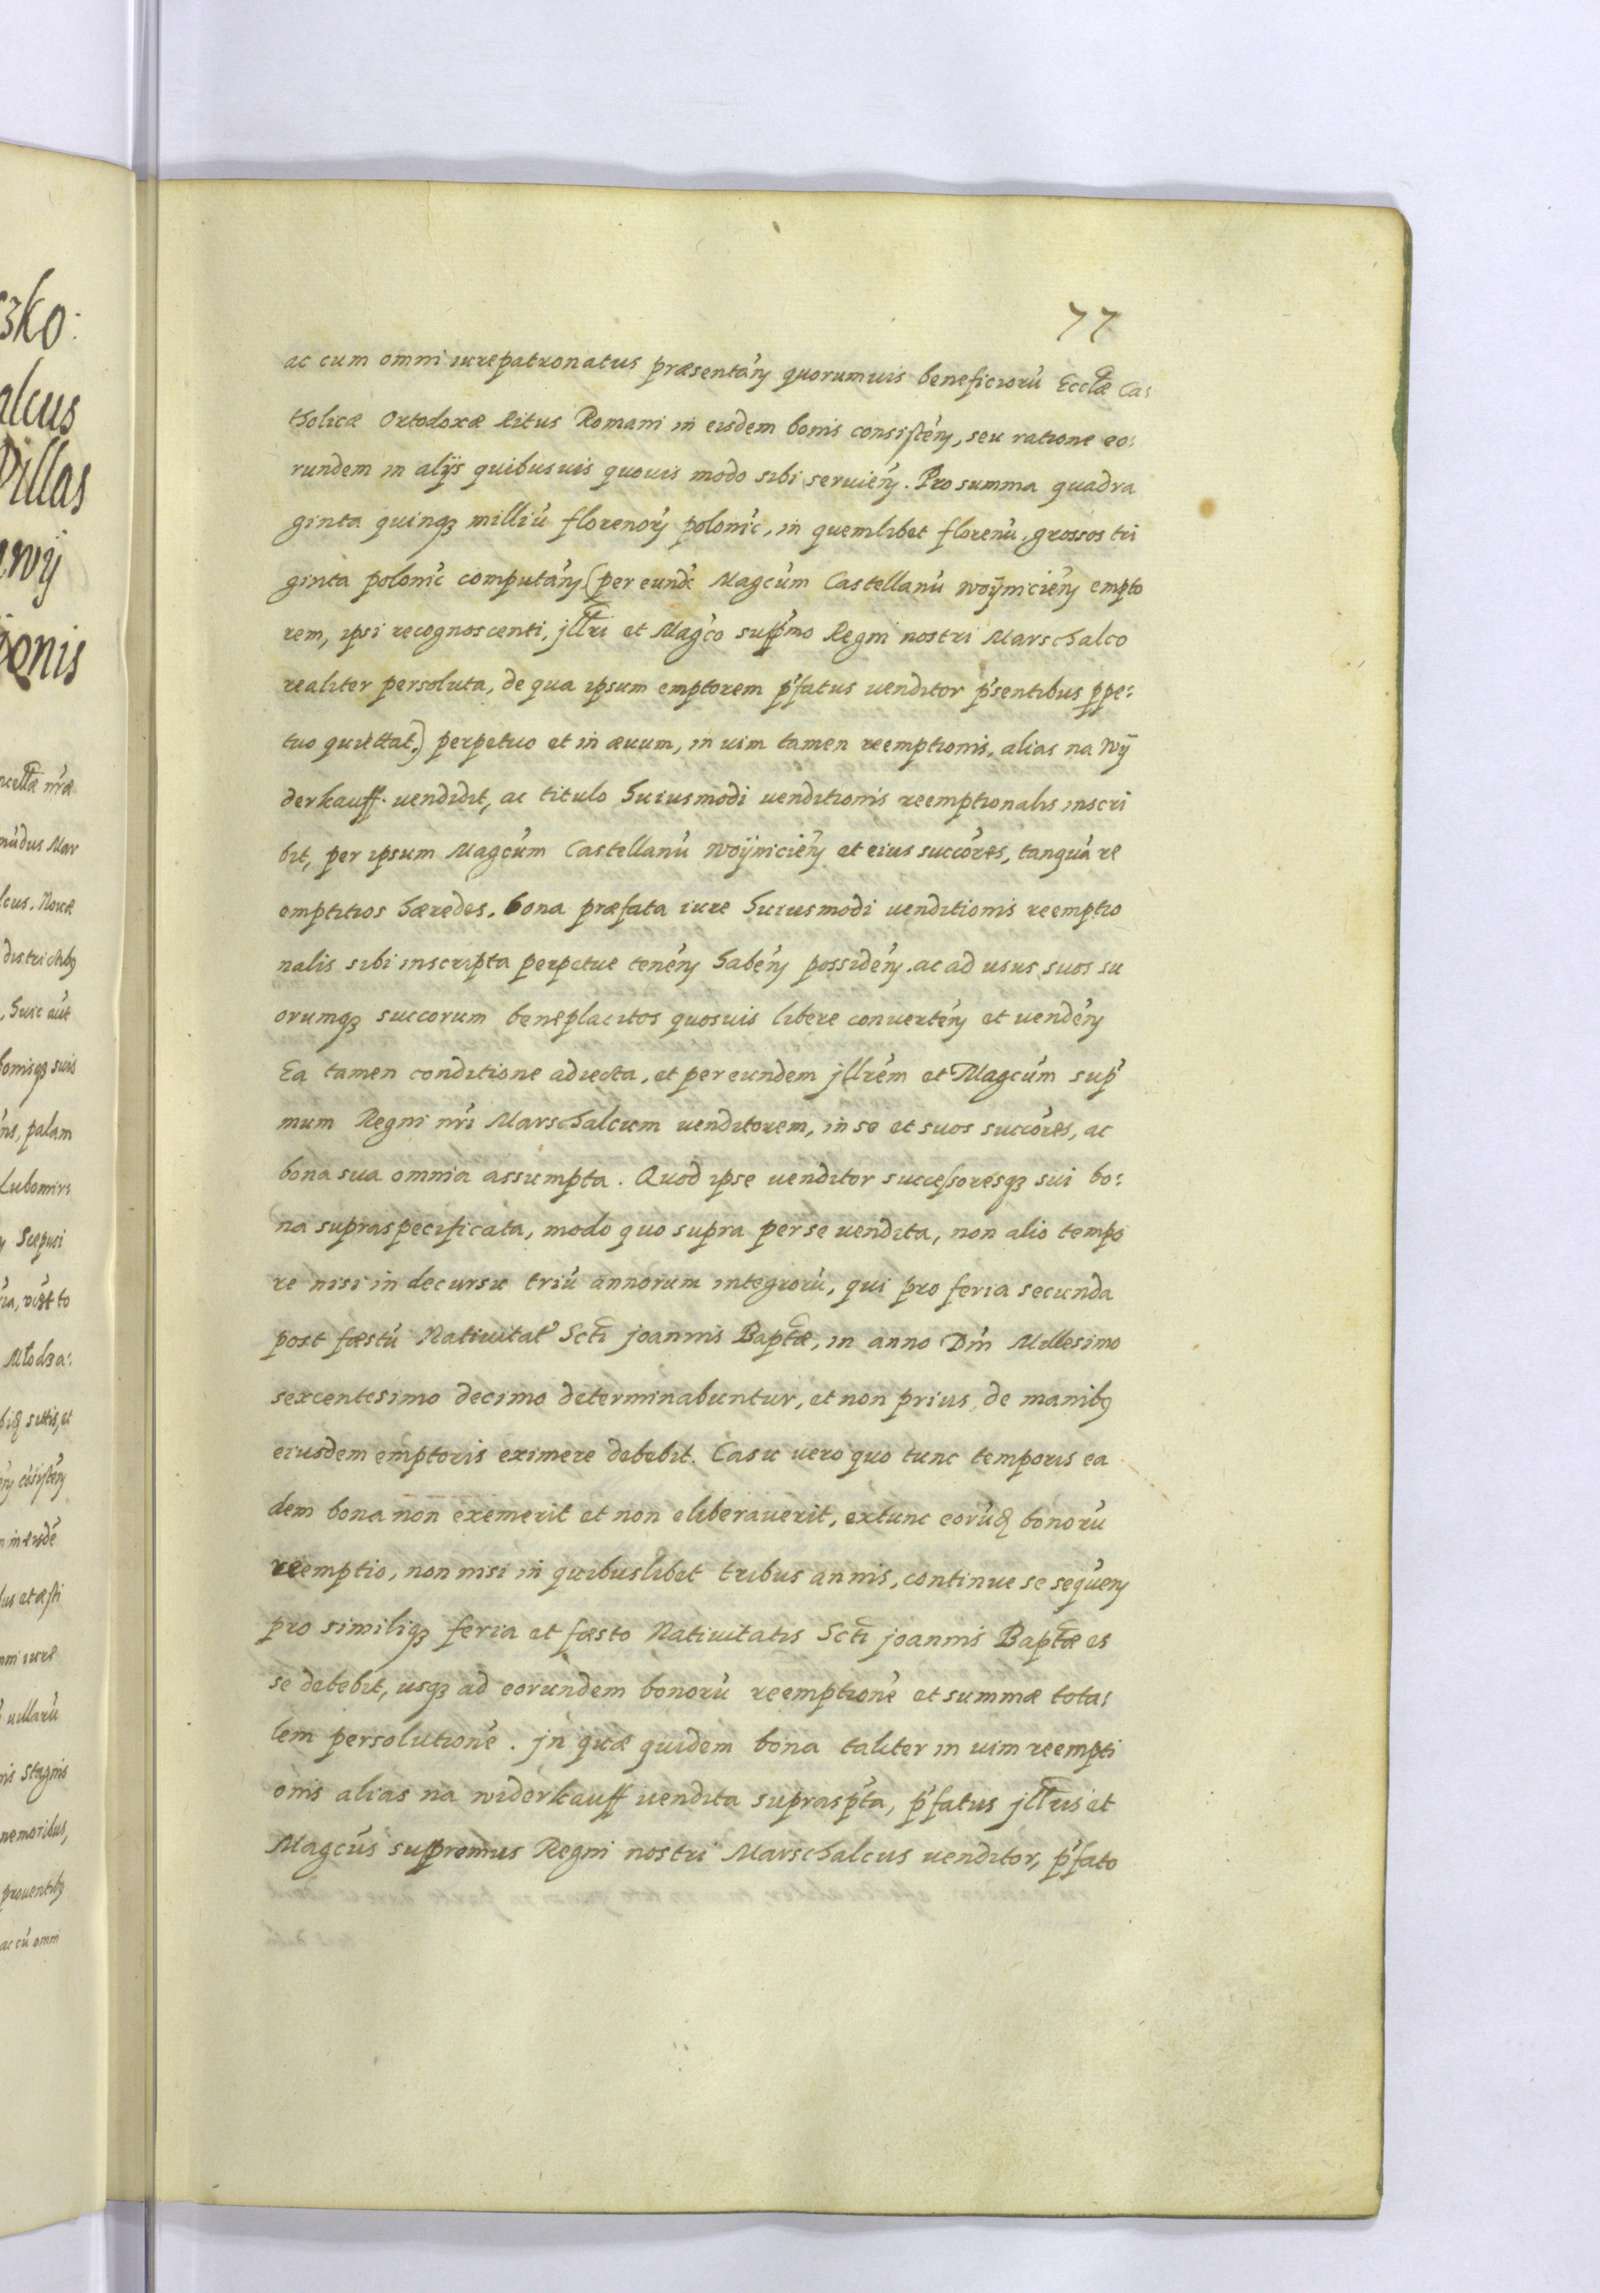 77
ac cum omni iurepatronatus præsentań quorumuis beneficiorú Ecclæ Ca:
tholicæ Ortodoxæ Ritus Romani in eisdem bonis consisteń, seu ratione eo:
rundem in alijs quibusuis quouis modo sibi seruień. Pro summa quadra
ginta quinqȝ milliú florenorꝝ poloníc, in quemlibet florenú, grossos tri
ginta poloníc computań (per eundé Magcúm Castellanú woÿnicień empto
rem, ipsi recognoscenti, jllri et Magćo suppmo Regni nostri Marschalco
realiter persoluta, de qua ipsum emptorem p'fatus uenditor p'sentibus ppe:
tuo quiettat,) perpetuo et in æuum, in uim tamen reemptionis, alias na Wÿ
derkauff. uendidit, ac titulo huiusmodi uenditionis reemptionalis inscri
bit, per ipsum Magcúm Castellanú woÿnicień et eius succóres, tanquá re
emptitios hæredes. bona præfata iure huiusmodi uenditionis reemptio
nalis sibi inscripta perpetue teneń habeń possideń. ac ad usus suos su
orumqȝ succorum beneplacitos quosuis libere conuerteń et uendeń
Ea tamen conditione adiecta, et per eundem jllrém et Magcúm sup'
mum Regni nr̃i Marschalcum uenditorem, in se et suos succóres, ac
bona sua omnia assumpta. Quod ipse uenditor successoresqȝ sui bo:
na supraspecificata, modo quo supra per se uendita, non alio tempo
re nisi in decursu triú annorum integrorú, qui pro feria secunda
post fæstú Natiuitat' Scti joannis Baptæ, in anno Dńi Millesimo
sexcentesimo decimo determinabuntur, et non prius de manibȝ
eiusdem emptoris eximere debebit. Casu uero quo tunc temporis ea
dem bona non exemerit et non eliberauerit, extunc eorúd bonorú
reemptio, non nisi in quibuslibet tribus annis, continue se sequeń
pro similiqȝ feria et fæsto Natiuitatis Scti joannis Baptæ es
se debebit, usqȝ ad eorundem bonorú reemptioné et summæ tota:
lem persolutioné. jn quæ quidem bona taliter in uim reempti
onis alias na widerkauff uendita supraspta, p'fatus jllris et
Magcús suppremus Regni nostri Marschalcus uenditor, p'fato